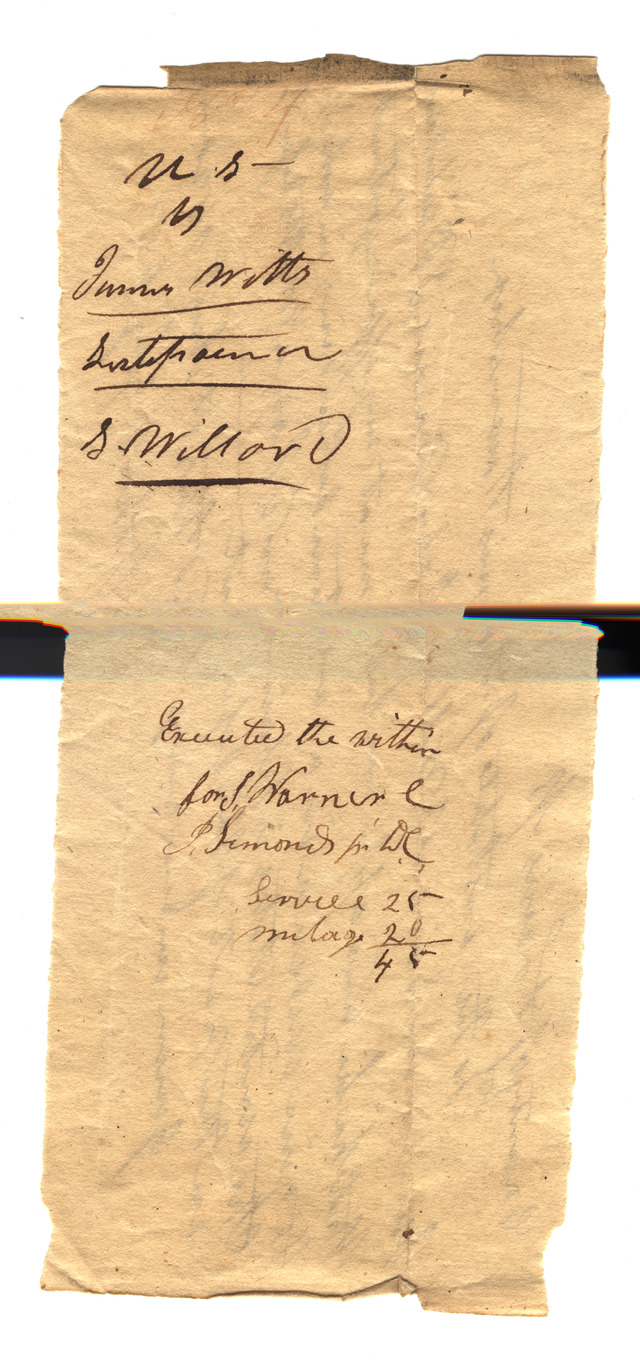 U. S—
vs
James Witts
S. Willard
Executed the within
for S. Warner C
J. Simonds pr DC
Service 25
milage 20
45